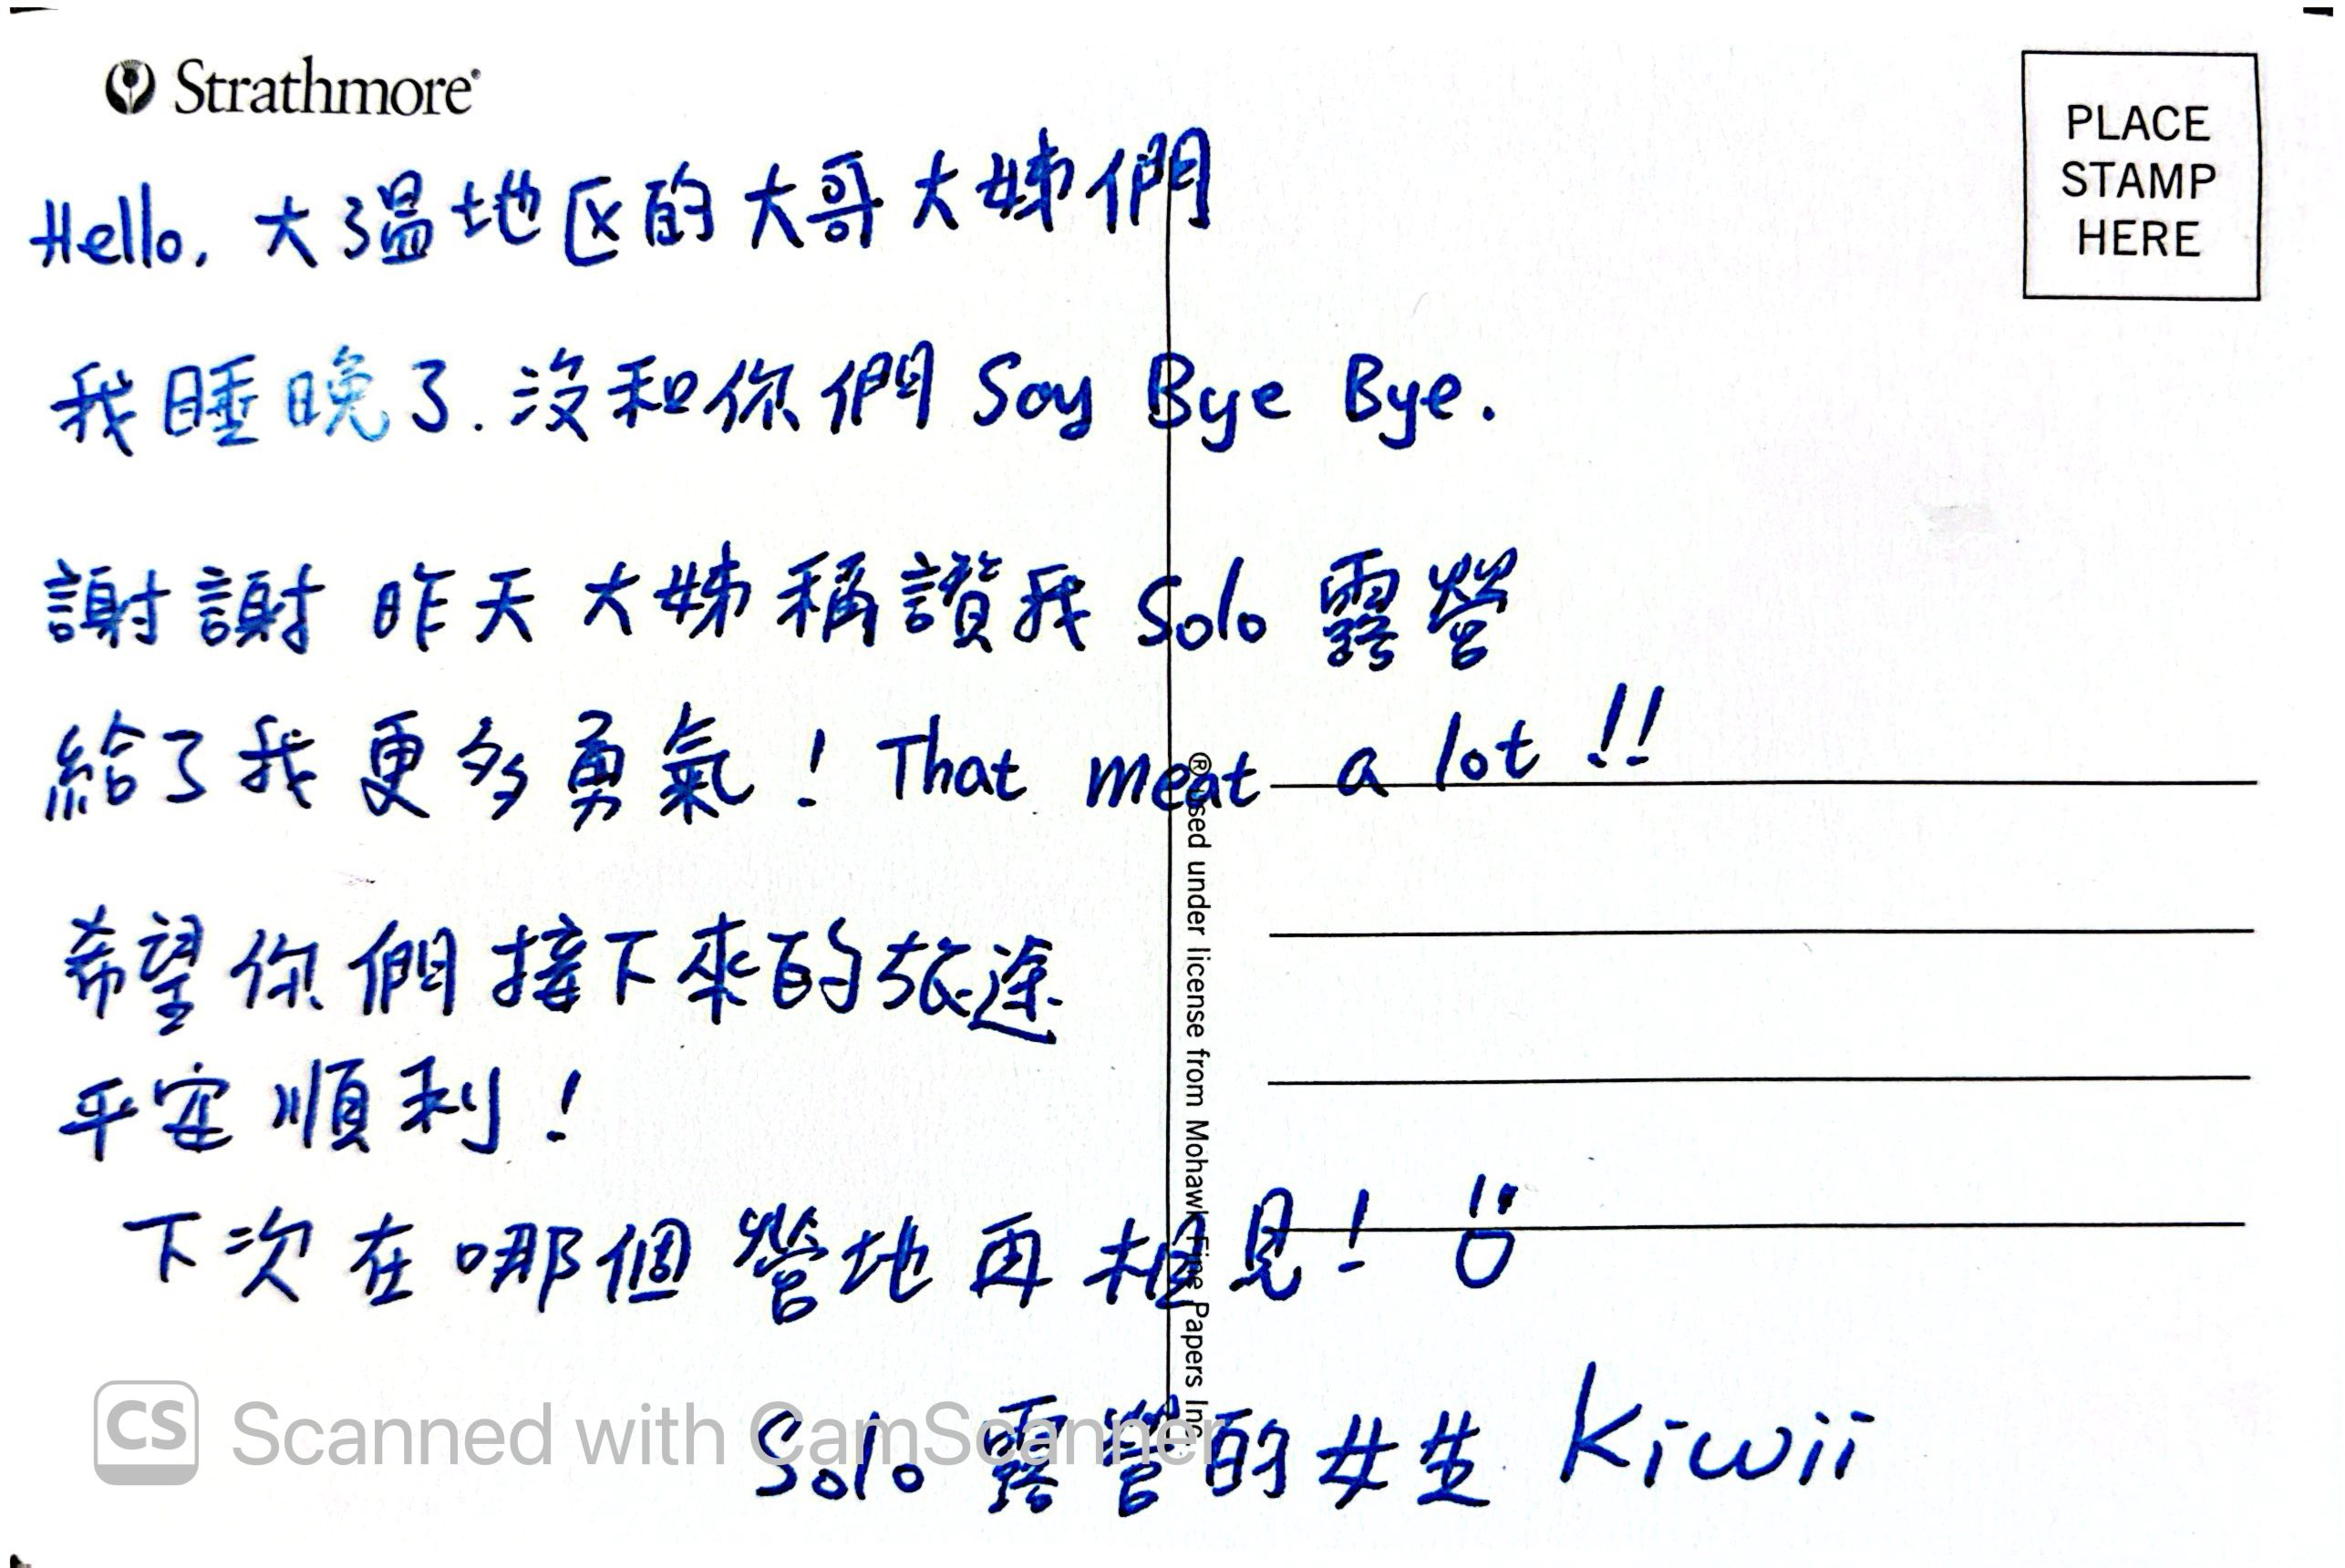 Strathmore®
PLACE
STAMP
HERE
Hello, 大溫地区的大哥大姊們
我睡晚了.沒和你們 Say Bye Bye.
謝謝昨天大姊稱讚我 Solo 露營
給了我更多勇氣! That meat a lot !!
希望你們接下來的旅途
平安順利!
下次在哪個營地再相見!
Solo 露營的女生 Kiwii
® used under license from Mohawk Fine Papers Inc.
CS Scanned with CamScanner